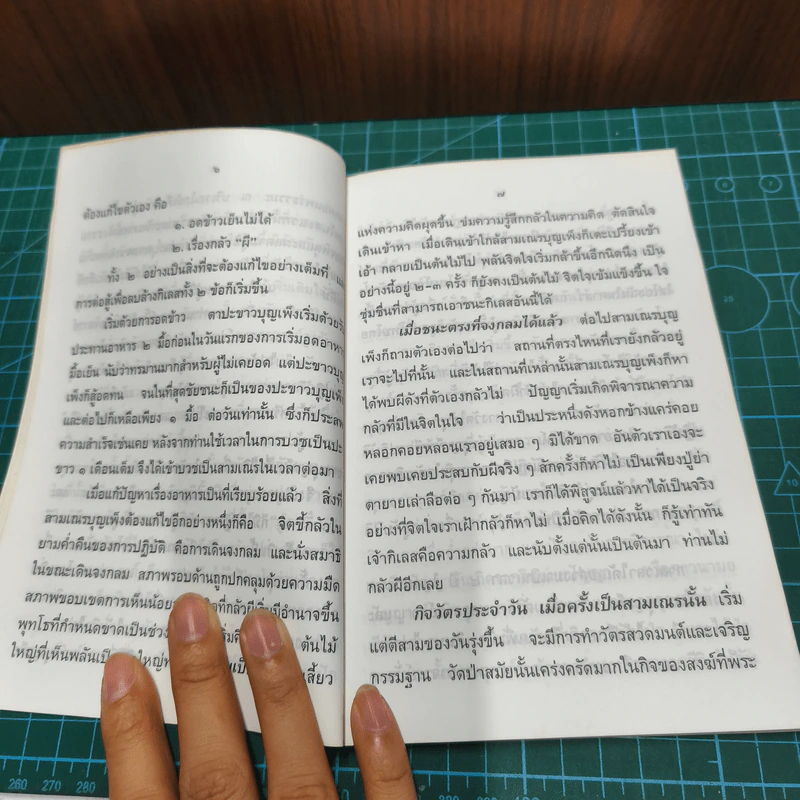 ๖
ต้องแก้ไขตัวเอง คือ
๑. อดข้าวเย็นไม่ได้
๒. เรื่องกลัว "ผี"
ทั้ง ๒ อย่างเป็นสิ่งที่จะต้องแก้ไขอย่างเต็มที่
การต่อสู้เพื่อลบล้างกิเลสทั้ง ๒ ข้อก็เริ่มขึ้น
เริ่มด้วยการอดข้าว ตาปะขาวบุญเพ็งเริ่มด้วย
ประทานอาหาร ๒ มื้อก่อนในวันแรกของการเริ่มอดอาหาร
มื้อเย็น นับว่าทรมานมากสำหรับผู้ไม่เคยอด แต่ปะขาวบุญ
เพ็งก็สู้อดทน จนในที่สุดชัยชนะก็เป็นของปะขาวบุญเพ็ง
และต่อไปก็เหลือเพียง ๑ มื้อ ต่อวันเท่านั้น ซึ่งก็ประสพ
ความสำเร็จเช่นเคย หลังจากท่านใช้เวลาในการบวชเป็นปะ
ขาว ๑ เดือนเต็ม จึงได้เข้าบวชเป็นสามเณรในเวลาต่อมา
เมื่อแก้ปัญหาเรื่องอาหารเป็นที่เรียบร้อยแล้ว สิ่งที่
สามเณรบุญเพ็งต้องแก้ไขอีกอย่างหนึ่งก็คือ จิตขี้กลัวใน
ยามค่ำคืนของการปฏิบัติ คือการเดินจงกลม และนั่งสมาธิ
ในขณะเดินจงกลม สภาพรอบด้านถูกปกคลุมด้วยความมืด
สภาพขอบเขตการเห็นน้อย ที่กลัวผีเริ่มมีอำนาจขึ้น
พุทโธที่กำหนดขาดเป็นช่วง ต้นไม้
ใหญ่ที่เห็นพลันเป็น เสี้ยว
๗
แห่งความคิดผุดขึ้น ข่มความรู้สึกกลัวในความคิด ตัดสินใจ
เดินเข้าหา เมื่อเดินเข้าใกล้สามเณรบุญเพ็งก็เตะเปรี้ยงเข้า
เอ้า กลายเป็นต้นไม้ไป พลันจิตใจเริ่มกล้าขึ้นอีกนิดนึง เป็น
อย่างนี้อยู่ ๒-๓ ครั้ง ก็ยังคงเป็นต้นไม้ จิตใจเข้มแข็งขึ้น ใจ
ชุ่มชื่นที่สามารถเอาชนะกิเลสอันนี้ได้
เมื่อชนะตรงที่จงกลมได้แล้ว ต่อไปสามเณรบุญ
เพ็งก็ถามตัวเองต่อไปว่า สถานที่ตรงไหนที่เรายังกลัวอยู่
เราจะไปที่นั้น และในสถานที่เหล่านั้นสามเณรบุญเพ็งก็หา
ได้พบผีดังที่ตัวเองกลัวไม่ ปัญญาเริ่มเกิดพิจารณาความ
กลัวที่มีในจิตในใจ ว่าเป็นประหนึ่งดังหอกข้างแคร่คอย
หลอกคอยหลอนเราอยู่เสมอ ๆ มิได้ขาด อันตัวเราเองจะ
เคยพบเคยประสบกับผีจริง ๆ สักครั้งก็หาไม่ เป็นเพียงปู่ย่า
ตายายเล่าลือต่อ ๆ กันมา เราก็ได้พิสูจน์แล้วหาได้เป็นจริง
อย่างที่จิตใจเราเฝ้ากลัวก็หาไม่ เมื่อคิดได้ดังนั้น ก็รู้เท่าทัน
เจ้ากิเลสคือความกลัว และนับตั้งแต่นั้นเป็นต้นมา ท่านไม่
กลัวผีอีกเลย
กิจวัตรประจำวัน เมื่อครั้งเป็นสามเณรนั้น เริ่ม
แต่ตีสามของวันรุ่งขึ้น จะมีการทำวัตรสวดมนต์และเจริญ
กรรมฐาน วัดป่าสมัยนั้นเคร่งครัดมากในกิจของสงฆ์ที่พระ
260 270 280